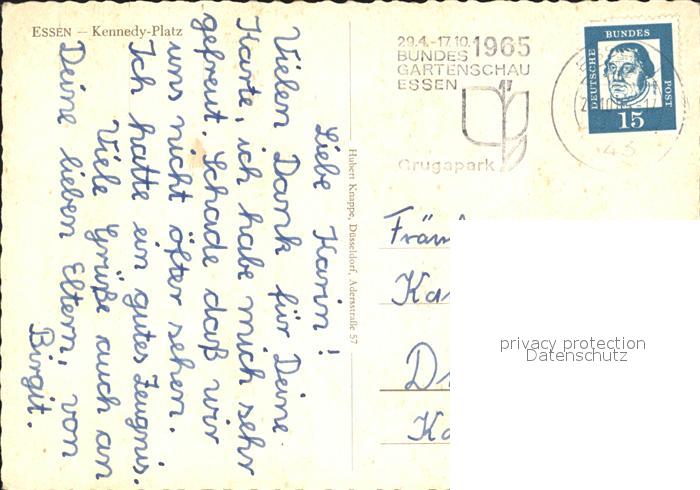 ESSEN — Kennedy-Platz
Liebe Karin!
Vielen Dank für Deine
Karte, ich habe mich sehr
gefreut. Schade daß wir
uns nicht öfter sehen.
Ich hatte ein gutes Zeugnis.
Viele Grüße auch an
Deine lieben Eltern, von
Birgit.
Hubert Knappe, Düsseldorf, Adersstraße 57
29.4.-17.10.1965
BUNDES
GARTENSCHAU
ESSEN
Grugapark
DEUTSCHE BUNDES POST
15
43
Ka
D
Ka
privacy protection
Datenschutz